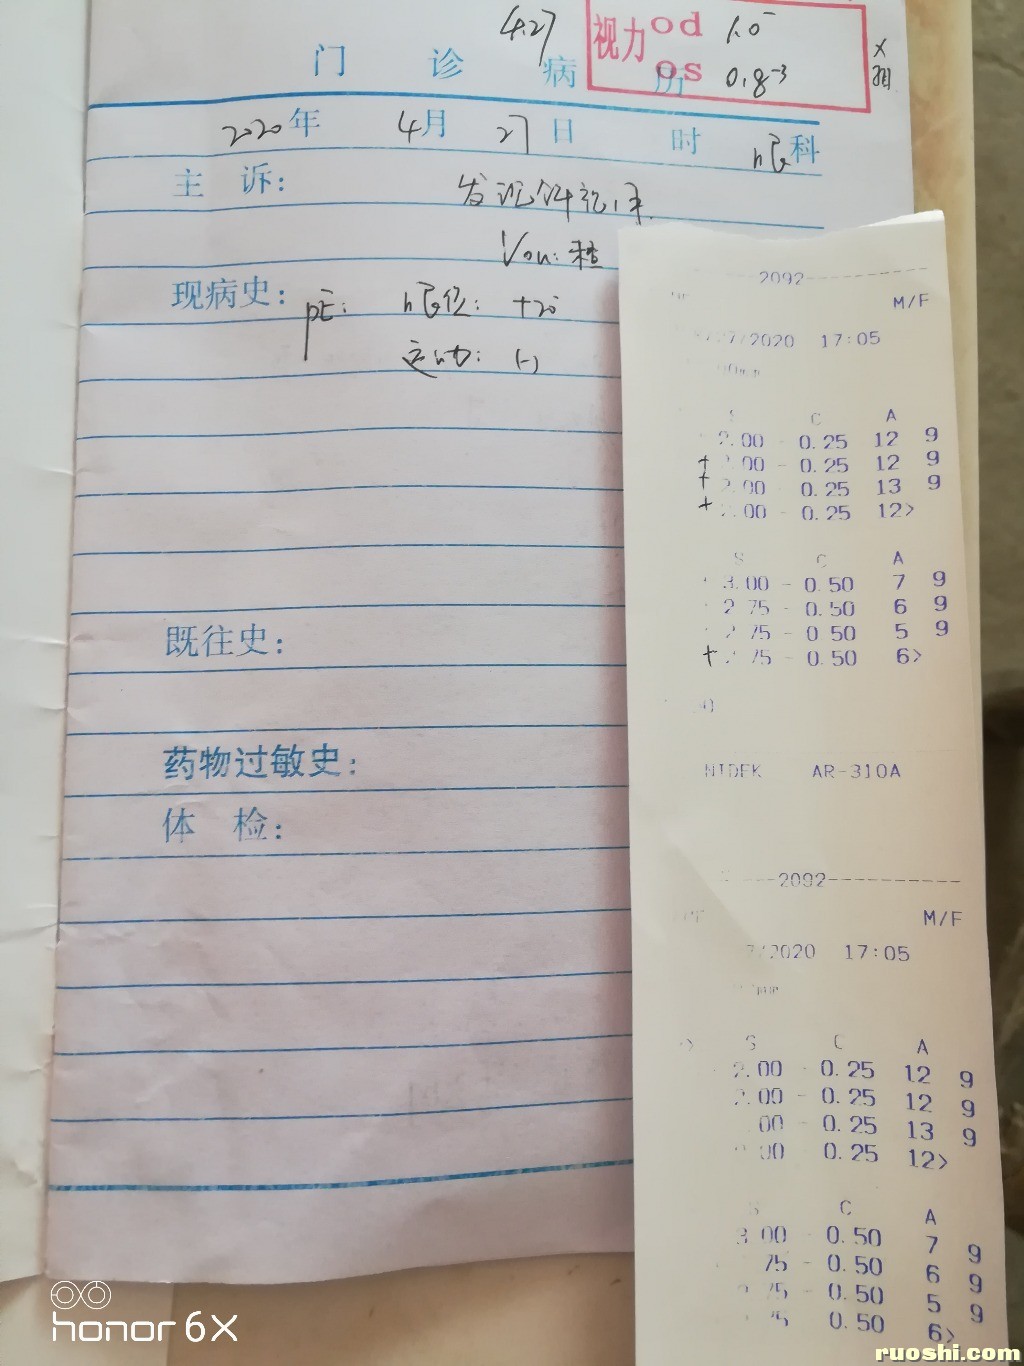 4.27
视力 od 1.0⁻
os 0.8⁻³
门 诊 病 历
2020年 4月 27日 时 眼科
主 诉:
发现斜视1年
现病史: PE: 眼位: +20°
运动: (-)
既往史:
药物过敏史:
体 检:
2092
M/F
/2020 17:05
S C A
2.00 - 0.25 12 9
+ 2.00 - 0.25 12 9
+ 2.00 - 0.25 13 9
+ .00 - 0.25 12>
S C A
3.00 - 0.50 7 9
2 75 - 0.50 6 9
2 75 - 0 50 5 9
+ 75 - 0.50 6>
NIDEK AR-310A
2092
M/F
/2020 17:05
S C A
2.00 0.25 12 9
2.00 - 0.25 12 9
00 - 0.25 13 9
00 0.25 12>
S C A
3 00 - 0.50 7 9
75 - 0.50 6 9
75 - 0.50 5 9
0.50 6>
honor 6X
ruoshi.com